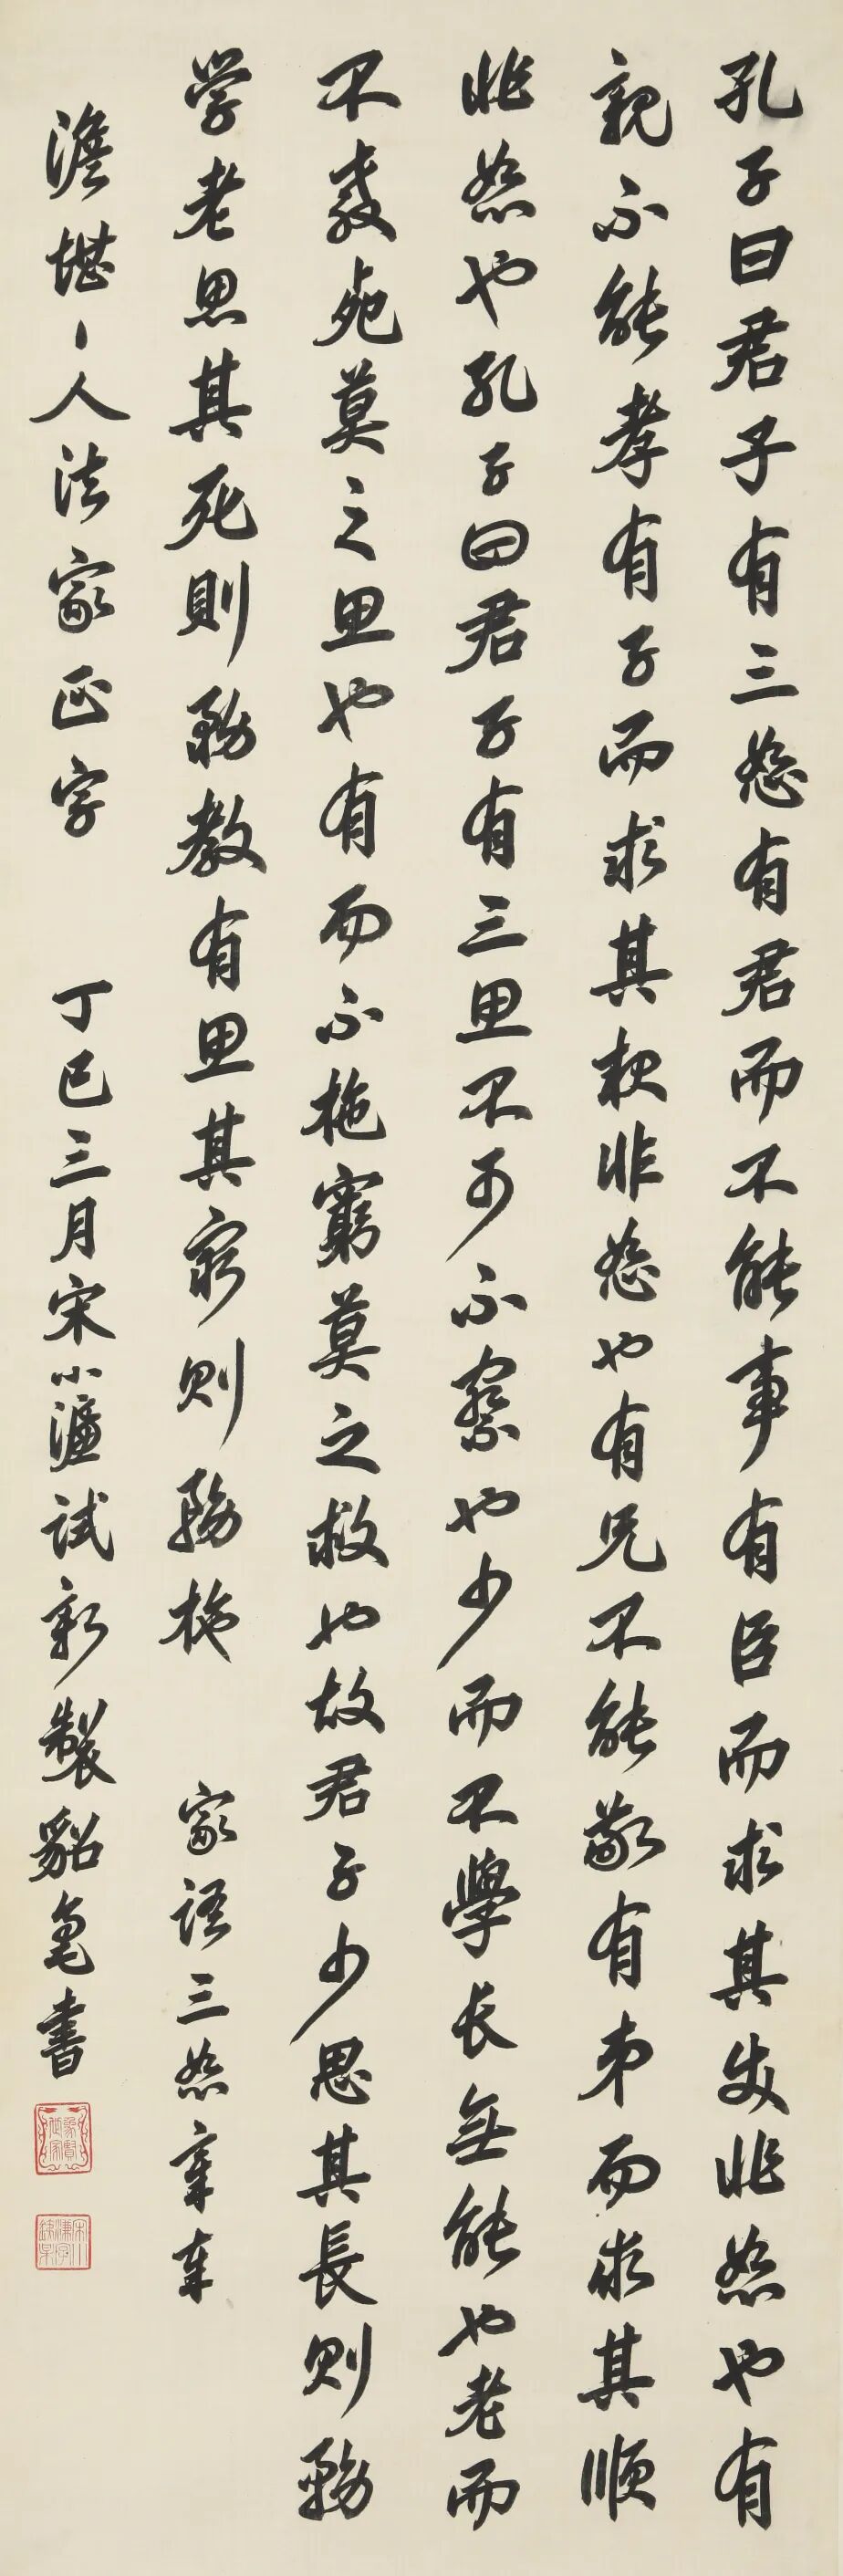 孔子曰君子有三恕有君而不能事有臣而求其使非恕也有
親不能孝有子而求其報非恕也有兄不能敬有弟而求其順
非恕也孔子曰君子有三思不可不察也少而不學長無能也老而
不教死莫之思也有而不施窮莫之救也故君子少思其長則務
学老思其死則務教有思其窮則務施 家語三恕章
澹堪人法家正字 丁巳三月宋小濂試新製貂毫書